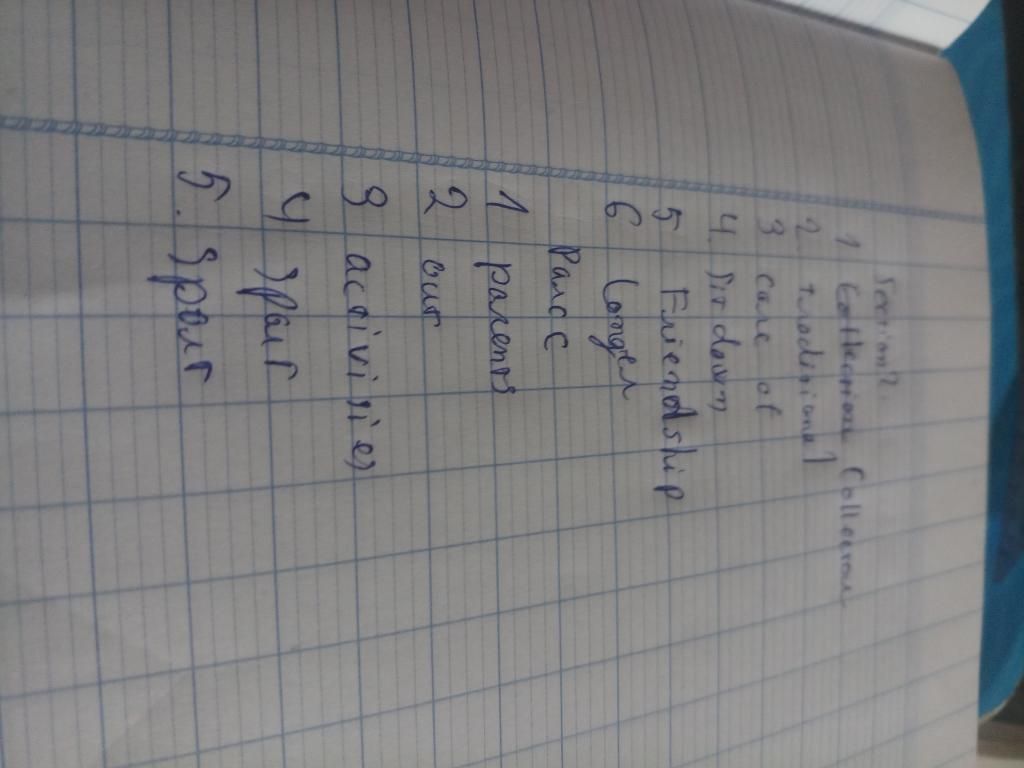 Section 2.
1 Collection
2. traditional
3 care of
4. Sit down
5 Friendship
6 longer
Part C
1 parents
2 our
3 activities
4 Spart
5. Sport